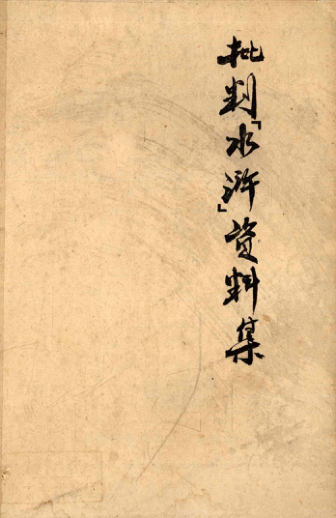 批判「水浒」资料集